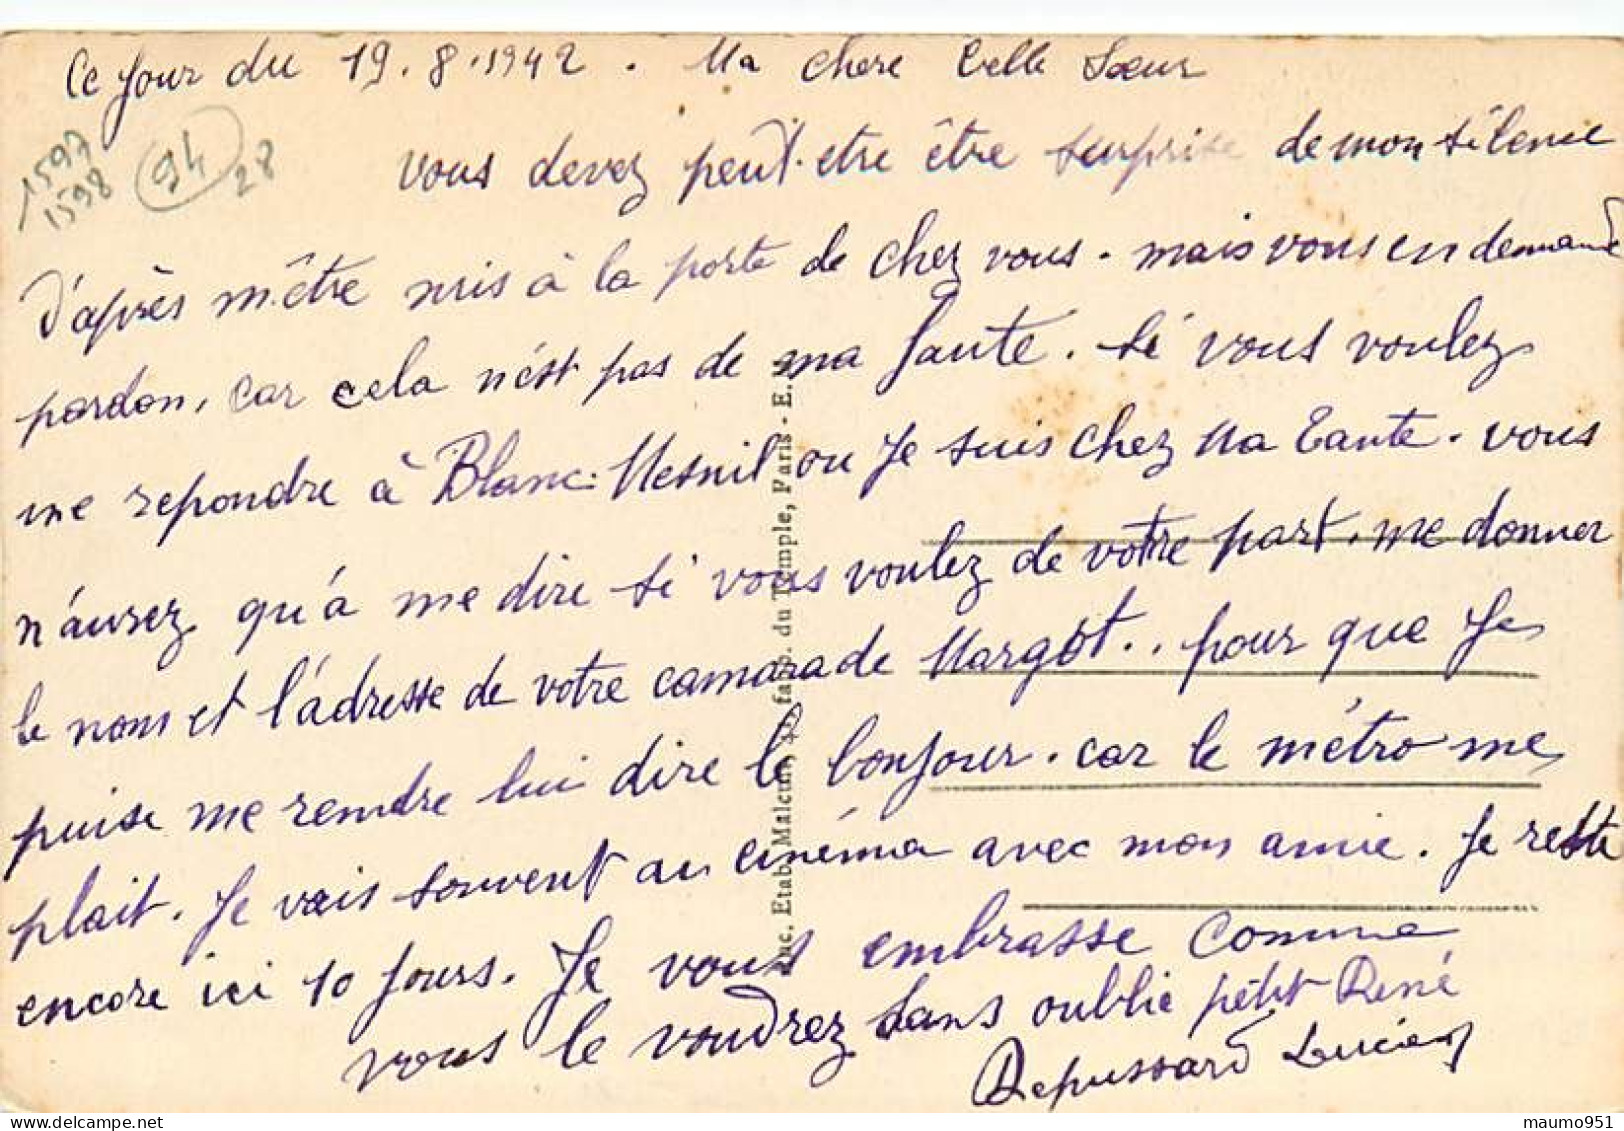 Ce Jour du 19.8.1942. Ma chere belle Sœur
1597
1598
94
28
vous devez peut.etre être surprise de mon silence
D'après m'être mis à la porte de chez vous. mais vous en demande
pardon, car cela n'est pas de ma faute. si vous voulez
me repondre à Blanc-Mesnil ou Je suis chez Ma Tante. vous
n'aurez qu'à me dire si vous voulez de votre part. me donner
le nom et l'adresse de votre camarade Margot.. pour que Je
puise me rendre lui dire le bonjour. car le métro me
plait. Je vais souvent au cinéma avec mon amie. Je reste
encore ici 10 Jours. Je vous embrasse comme
vous le voudrez sans oublie petit René
Repussard Lucien
Suc. Etabl. Malcuit, faub. du Temple, Paris - E.
maumo951